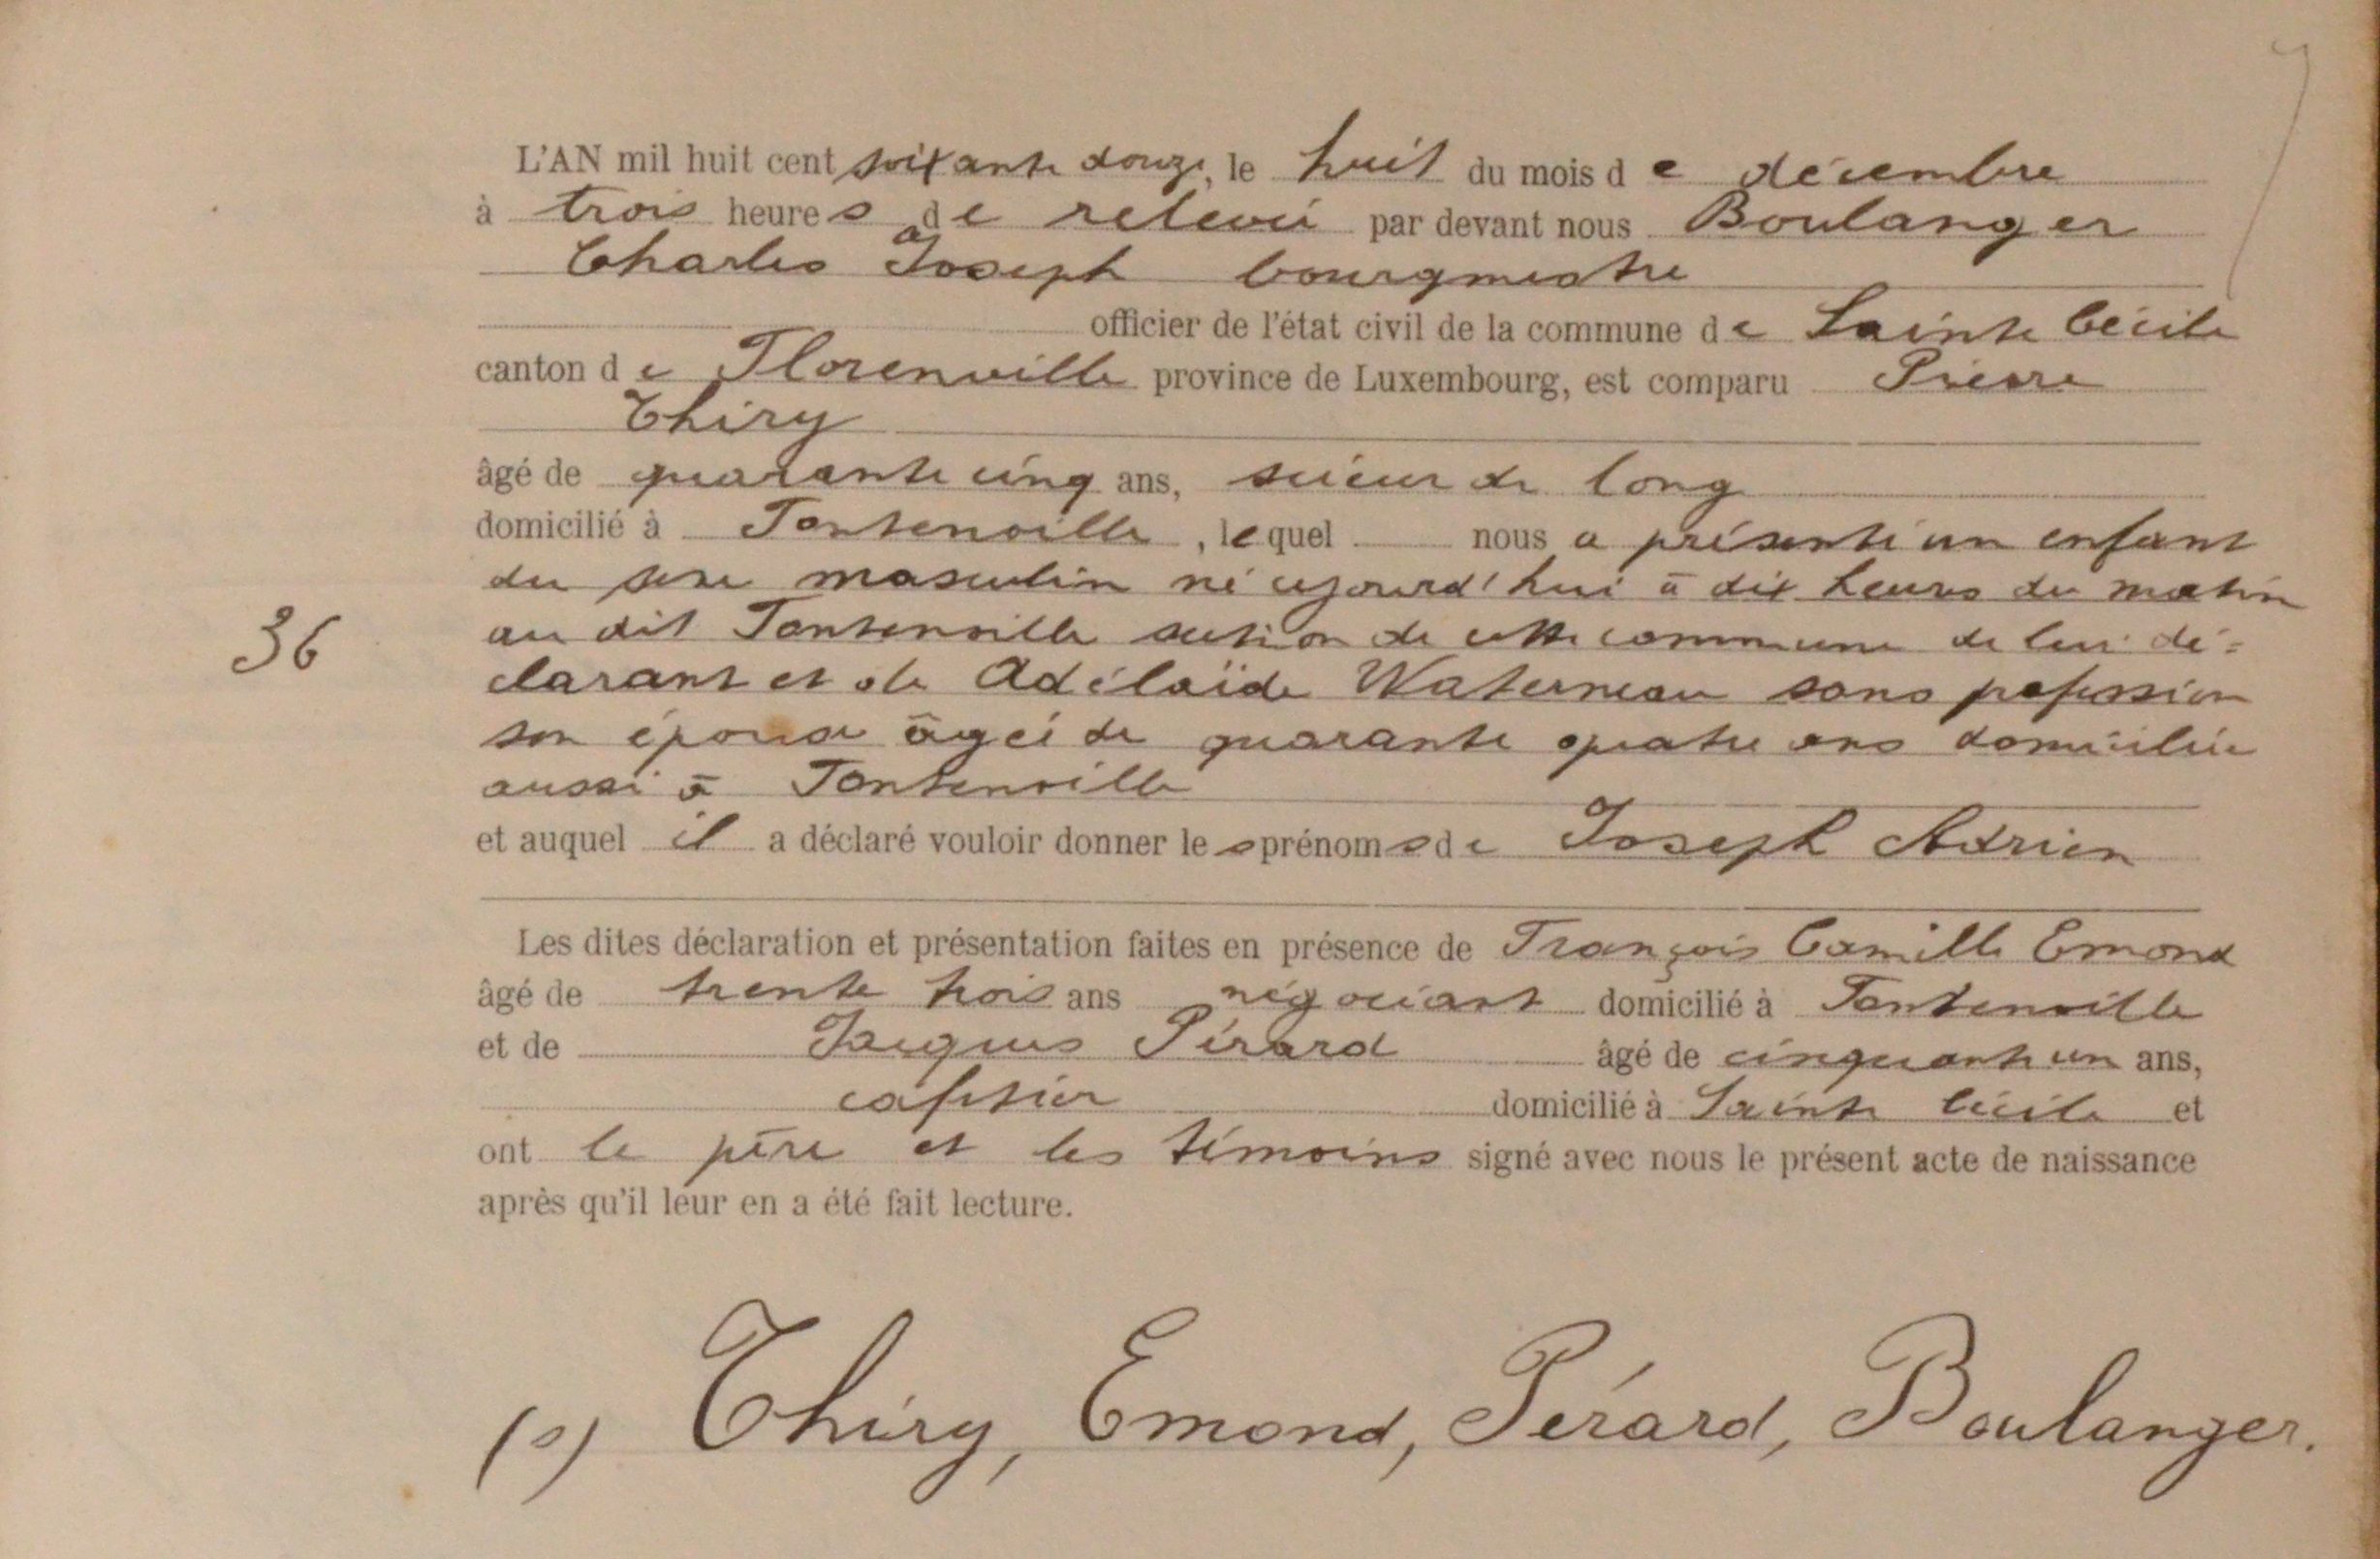 L'AN mil huit cent soixante douze, le huit du mois de décembre
à trois heures de relevée par devant nous Boulanger
Charles Joseph bourgmestre
officier de l'état civil de la commune de Sainte Cécile
canton de Florenville province de Luxembourg, est comparu Pierre
Thiry
âgé de quarante cinq ans, scieur de long
domicilié à Fontenoille, lequel nous a présenté un enfant
du sexe masculin né cejourd'hui à dix heures du matin
36
au dit Fontenoille section de cette commune de lui dé=
clarant et de Adélaïde Waterneau sans profession
son épouse âgée de quarante quatre ans domiciliée
aussi à Fontenoille
et auquel il a déclaré vouloir donner les prénoms de Joseph Adrien
Les dites déclaration et présentation faites en présence de François Camille Emond
âgé de trente trois ans négociant domicilié à Fontenoille
et de Jacques Pérard âgé de cinquante un ans,
cafetier domicilié à Sainte Cécile et
ont le père et les témoins signé avec nous le présent acte de naissance
après qu'il leur en a été fait lecture.
(s) Thiry, Emond, Pérard, Boulanger.